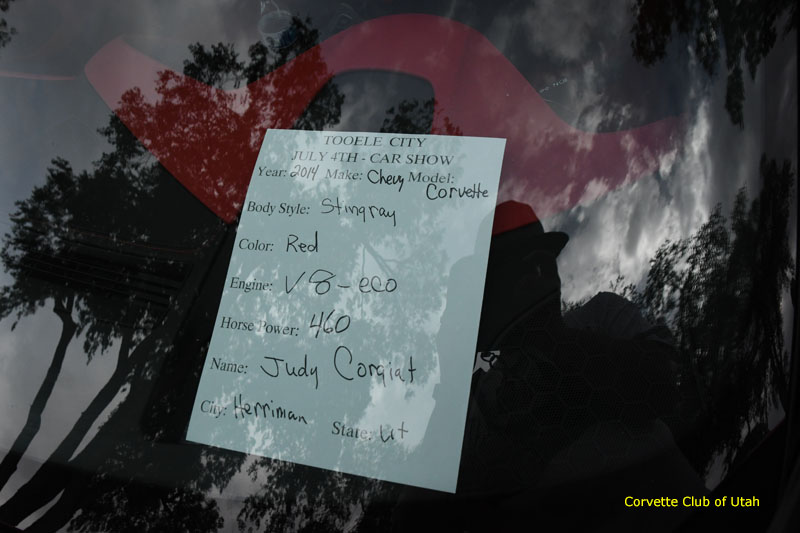 TOOELE CITY
JULY 4TH - CAR SHOW
Year: 2014 Make: Chevy Model: Corvette
Body Style: Stingray
Color: Red
Engine: V8-eco
Horse Power: 460
Name: Judy Corgiat
City: Herriman State: Ut
Corvette Club of Utah